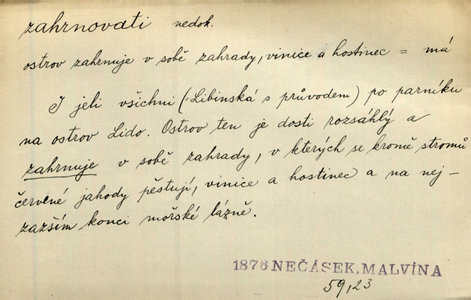 zahrnovati nedok.
ostrov zahrnuje v sobě zahrady, vinice a hostinec = má
I jeli všichni (-Libinská s průvodem) po parníku
na ostrov Lido. Ostrov ten je dosti rozsáhlý a
zahrnuje v sobě zahrady, v kterých se kromě stromů
červené jahody pěstují, vinice a hostinec a na nej-
zazším konci mořské lázně.
1876 NEČÁSEK, MALVÍNA
59,23